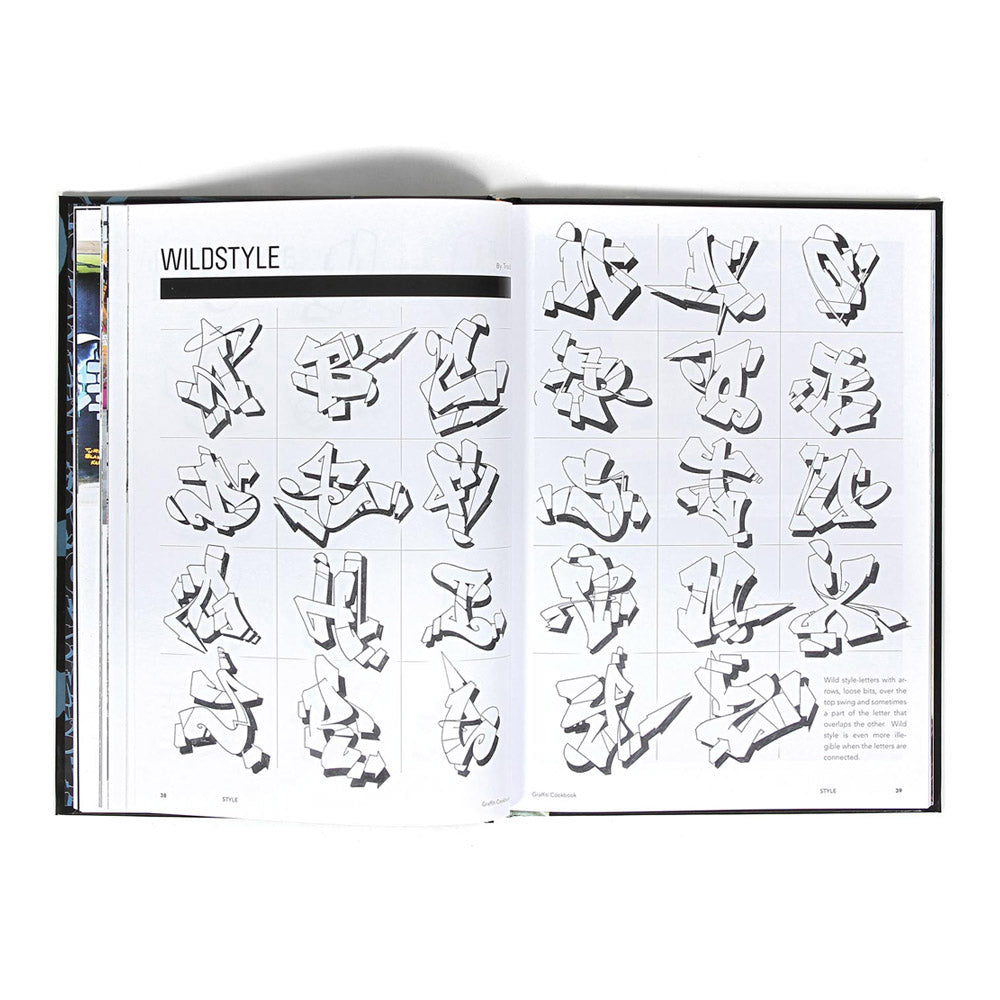 WILDSTYLE
By
A B C
D E F
G H I
J K L
38
STYLE
Graffiti Cookbook
M N O
P Q R
S T U
V W X
Y Z
Wild style-letters with ar-
rows, loose bits, over the
top swing and sometimes
a part of the letter that
overlaps the other. Wild
style is even more ille-
gible when the letters are
connected.
Graffiti Cookbook
STYLE
39